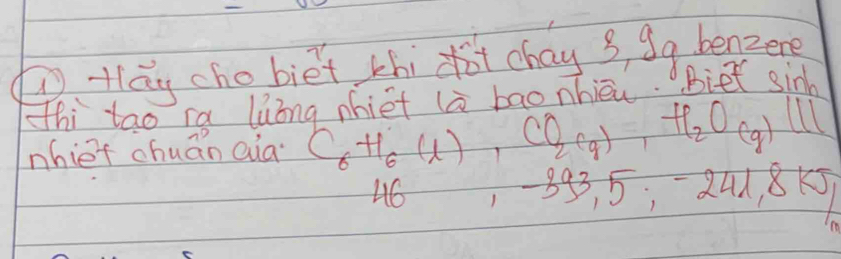 ① Hãy cho biết khi đốt cháy 3,9g benzene
thì tạo ra lượng nhiệt là bao nhiêu. Biết sinh
nhiệt chuẩn của: C₆H₆(l), CO₂(g), H₂O(g) lll
46, -393,5; -241,8 KJ/m